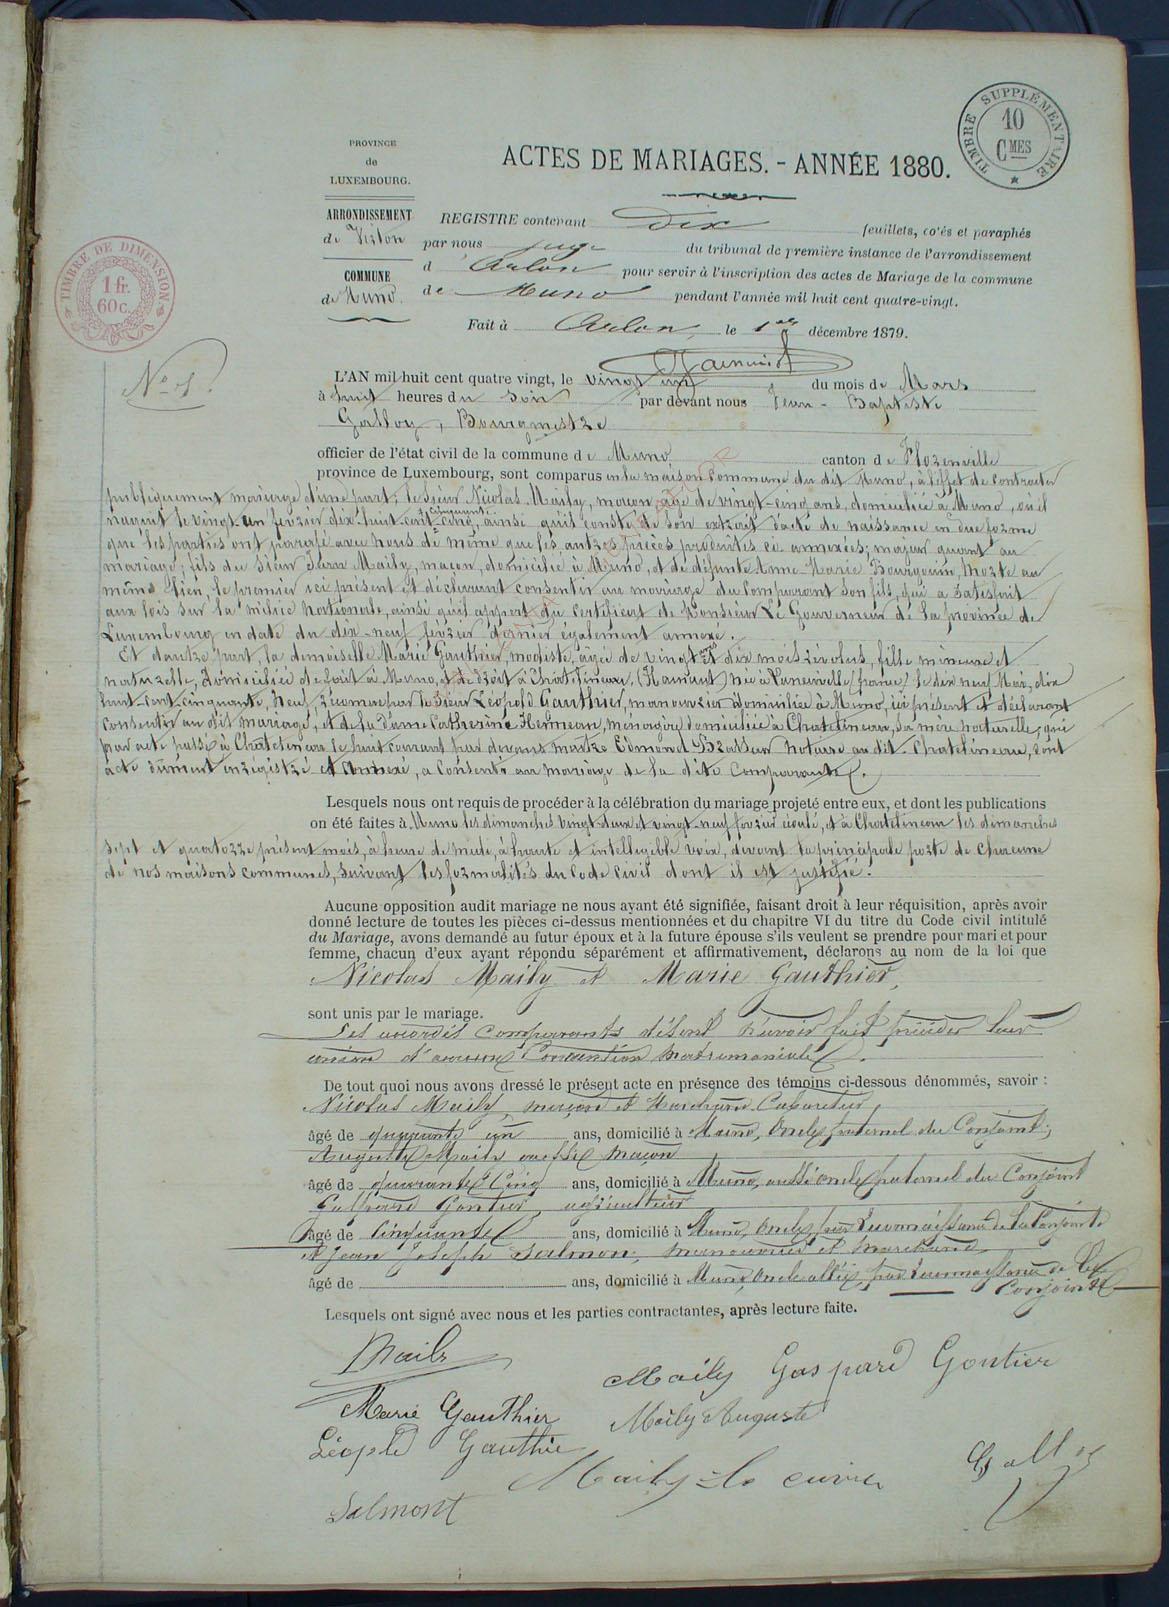 PROVINCE
de
LUXEMBOURG.
ARRONDISSEMENT
de Virton
COMMUNE
de Muno.
TIMBRE SUPPLÉMENTAIRE
10
CMES
TIMBRE DE DIMENSION
1 fr.
60 c.
ACTES DE MARIAGES. - ANNÉE 1880.
REGISTRE contenant Dix feuillets, cotés et paraphés
par nous juge du tribunal de première instance de l'arrondissement
d'Arlon pour servir à l'inscription des actes de Mariage de la commune
de Muno pendant l'année mil huit cent quatre-vingt.
Fait à Arlon, le 1er décembre 1879.
No 1.
L'AN mil huit cent quatre vingt, le vingt un du mois de Mars
à huit heures du soir par devant nous Jean-Baptiste
Galloy, Bourgmestre
officier de l'état civil de la commune de Muno canton de Florenville
province de Luxembourg, sont comparus en la maison commune du dit Muno, à l'effet de contracter
publiquement mariage d'une part, le sieur Nicolas Maily, maçon, âgé de vingt-cinq ans, domicilié à Muno, où il
naquit le vingt-un février dix-huit-cent cinquante-cinq, ainsi qu'il conste de son extrait d'acte de naissance en due forme
que les parties ont paraphé avec nous de même que les autres pièces produites ci annexées; majeur quant au
mariage, fils du sieur Jean Maily, maçon, domicilié à Muno, et de défunte Anne-Marie Bourguin, morte au
même lieu, le premier ici présent et déclarant consentir au mariage du comparant son fils, qui a satisfait
aux lois sur la milice nationale, ainsi qu'il appert du certificat de Monsieur Le Gouverneur de la province de
Luxembourg en date du dix-neuf février dernier également annexé.
Et d'autre part, la demoiselle Marie Gauthier, modiste, âgée de vingt ans dix mois révolus, fille mineure et
naturelle, domiciliée de fait à Muno, et de droit à Chatelineau, (Hainaut) née à Luneville (france) le dix neuf Mai, dix
huit-cent-cinquante, neuf, reconnue par le sieur Léopold Gauthier, manouvrier domicilié à Muno, ici présent et déclarant
consentir au dit mariage, et de la Dame Catherine Herman, ménagère domiciliée à Chatelineau, sa mère naturelle, qui
par acte passé à Chatelineau le huit courant par devant maitre Edmond Brasseur notaire au dit Chatelineau, dont
acte dûment enrégistré et annexé, a consenti au mariage de la dite comparante.
Lesquels nous ont requis de procéder à la célébration du mariage projeté entre eux, et dont les publications
on été faites à Muno les dimanches vingt-deux et vingt-neuf février écoulé, et à Chatelineau les dimanches
sept et quatorze présent mois, à heure de midi, à haute et intelligible voix, devant la principale porte de chacune
de nos maisons communes, suivant les formalités du Code civil dont il est justifié.
Aucune opposition audit mariage ne nous ayant été signifiée, faisant droit à leur réquisition, après avoir
donné lecture de toutes les pièces ci-dessus mentionnées et du chapitre VI du titre du Code civil intitulé
du Mariage, avons demandé au futur époux et à la future épouse s'ils veulent se prendre pour mari et pour
femme, chacun d'eux ayant répondu séparément et affirmativement, déclarons au nom de la loi que
Nicolas Maily et Marie Gauthier,
sont unis par le mariage.
Les comparants disent n'avoir fait précéder leur
union d'aucune Convention Matrimoniale.
De tout quoi nous avons dressé le présent acte en présence des témoins ci-dessous dénommés, savoir :
Nicolas Maily, maçon et Marchand Cabaretier,
âgé de quarante un ans, domicilié à Muno, Oncle paternel du Conjoint;
Auguste Maily aussi maçon
âgé de quarante Cinq ans, domicilié à Muno, aussi oncle paternel du Conjoint
Gaspard Gontier, agriculteur
âgé de Cinquante ans, domicilié à Muno, Oncle par Reconnaissance de la Conjointe
et Jean Joseph Salmon, manouvrier et marchand,
âgé de ans, domicilié à Muno, Oncle allié par Reconnaissance de la
Conjointe
Lesquels ont signé avec nous et les parties contractantes, après lecture faite.
Maily
Maily Gaspard Gontier
Marie Gauthier Maily Auguste
Léopold Gauthie
Maily
Galloy
Salmont